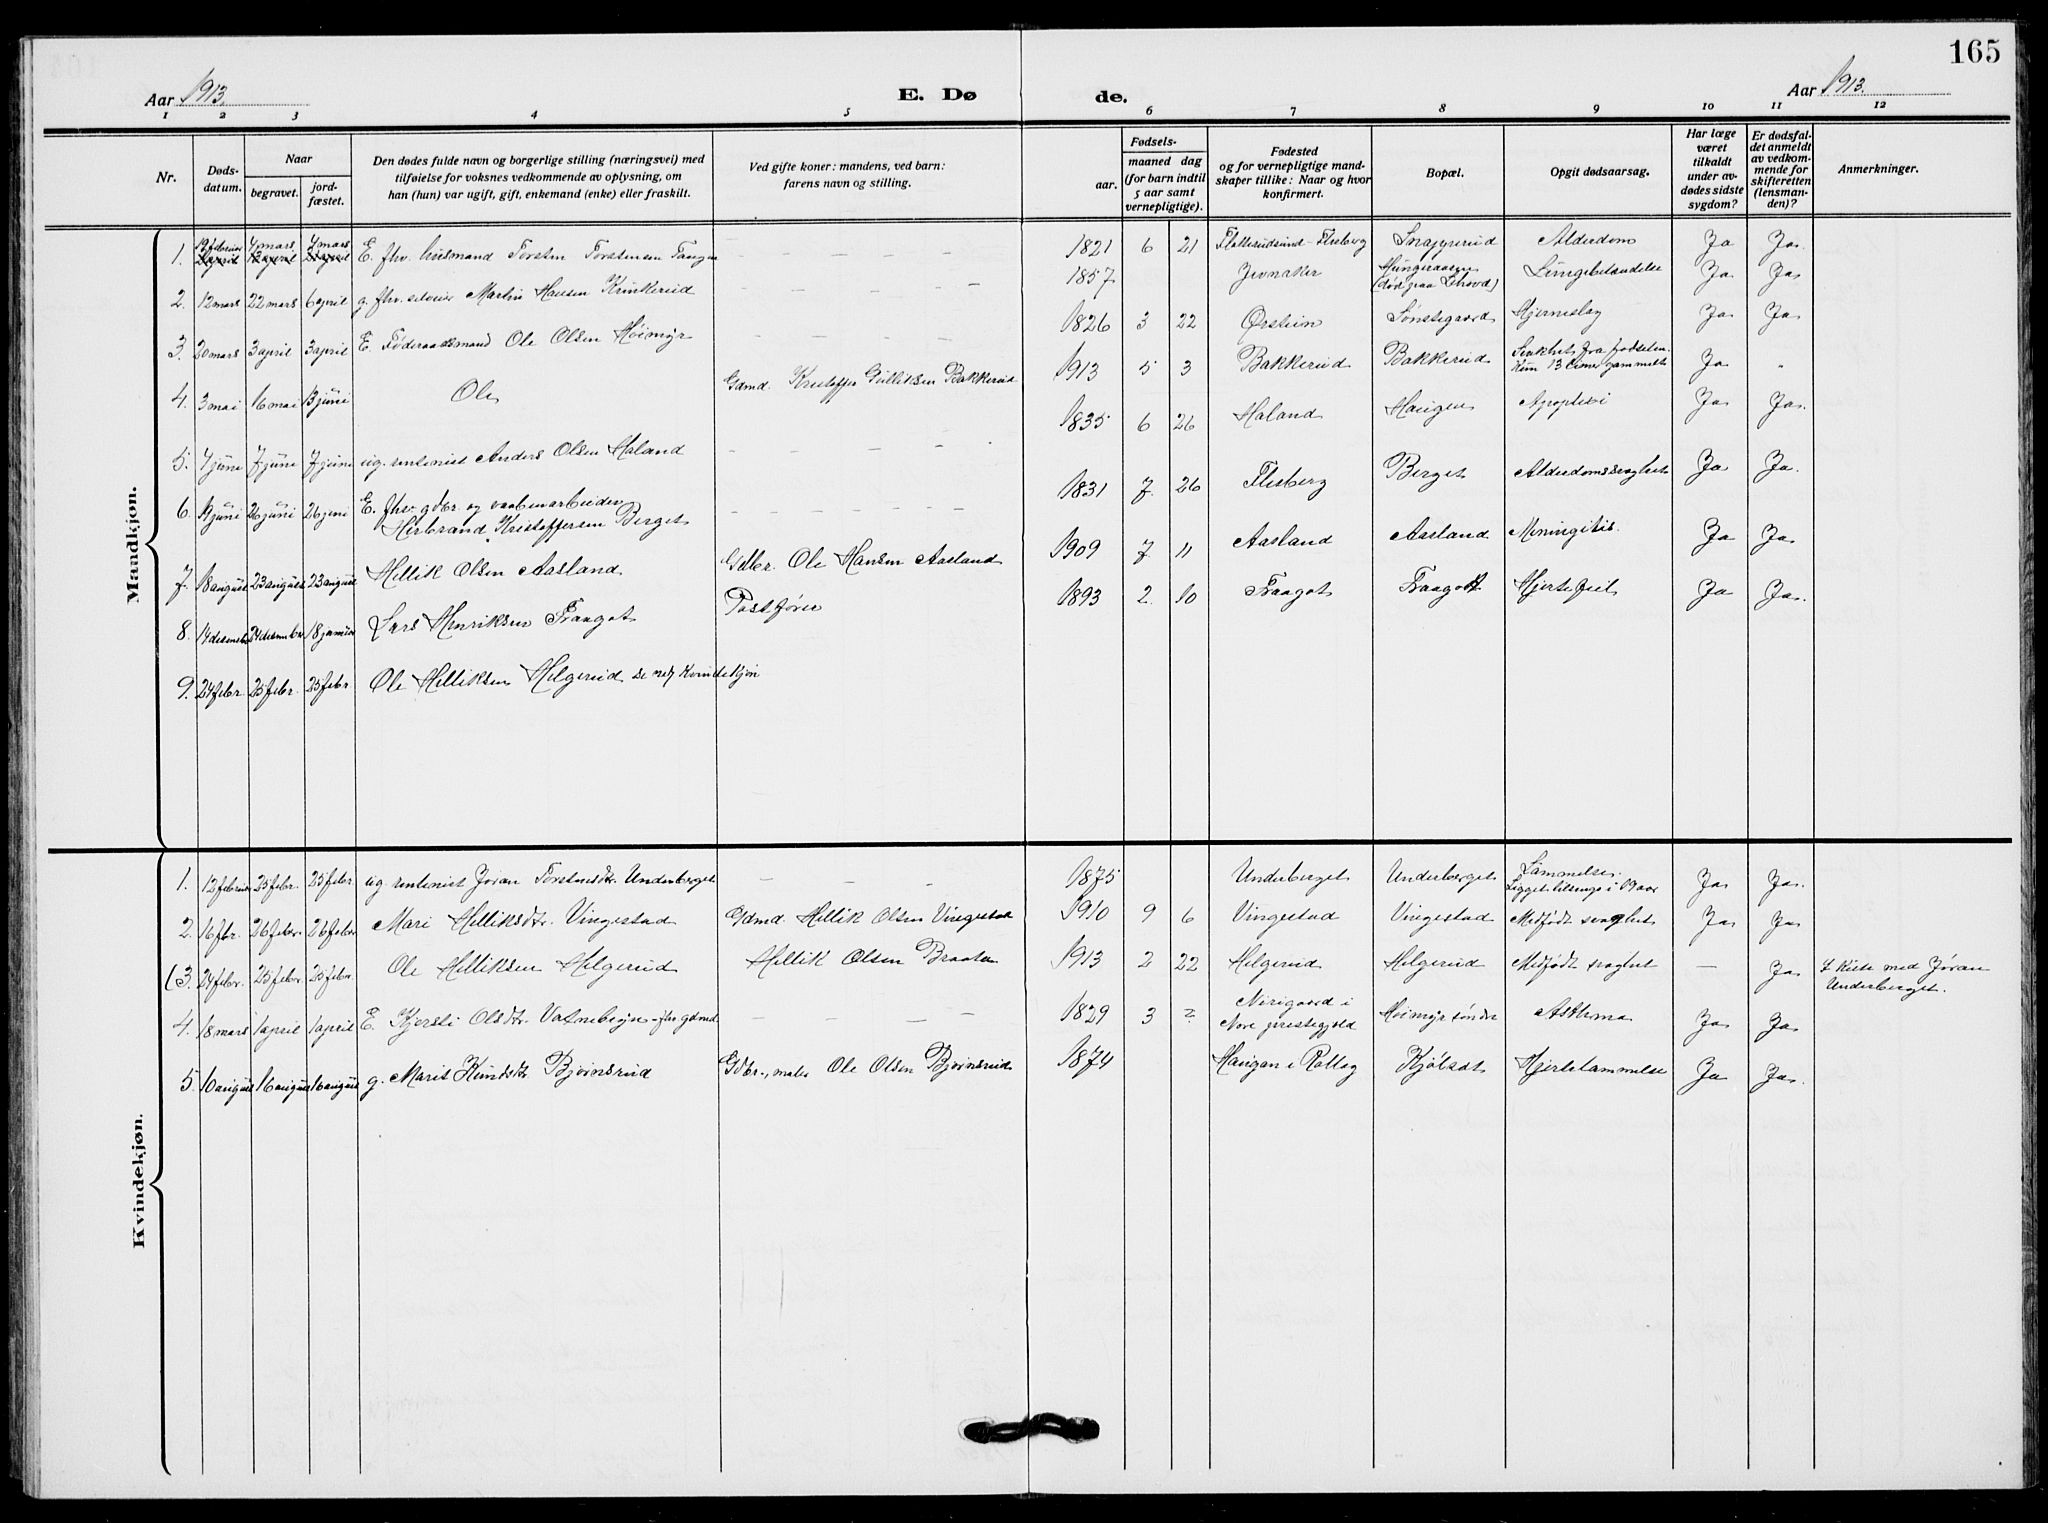 165
Aar 1913. E. Dø de. Aar 1913.
1 2 3 4 5 6 7 8 9 10 11 12
Nr.
Døds-
datum.
Naar
begravet.
jord-
fæstet.
Den dødes fulde navn og borgerlige stilling (næringsvei) med
tilføielse for voksnes vedkommende av oplysning, om
han (hun) var ugift, gift, enkemand (enke) eller fraskilt.
Ved gifte koner: mandens, ved barn:
farens navn og stilling.
Fødsels-
aar.
maaned dag
(for barn indtil
5 aar samt
vernepligtige).
Fødested
og for vernepligtige mand-
skaper tillike: Naar og hvor
konfirmert.
Bopæl.
Opgit dødsaarsag.
Har læge
været
tilkaldt
under av-
dødes sidste
sygdom?
Er dødsfal-
det anmeldt
av vedkom-
mende for
skifteretten
(lensman-
den)?
Anmerkninger.
Mandkjøn.
1. 19 februar 4 mars 4 mars E. fhv. husmand Torsten Torstensen Tangen – – – – – 1821 6 21 Flatterudsund - Flesberg Snapperud Alderdom Ja Ja.
2. 12 mars 22 mars 6 april g. fhv. Martin Hansen Krinkerud – – – – – 1857 Jevnaker Hungeraasen (død paa Lehovd) Lungebetændelse Ja Ja
3. 20 mars 3 april 3 april E. Føderaadsmand Ole Olsen Høimyr – – – – – 1826 3 22 Ørstein Sønstegaard Hjerneslag Ja Ja
4. 3 mai 16 mai 13 juni Ole Gdmd. Kristoffer Gulliksen Bakkerud 1913 5 3 Bakkerud Bakkerud Svakhet fra fødselen. Kun 13 timer gammelt Ja "
5. 4 juni 7 juni 7 juni ug. rentenist Anders Olsen Haland – – – – 1835 6 26 Haland Haugen Apoplexi Ja Ja.
6. juni 26 juni 26 juni E. fhv. gdbr. og vaabenarbeider
Herbrand Kristoffersen Berget – – – – – 1831 7. 26 Flesberg Berget Alderdomssvaghet Ja Ja.
7. 18 august 23 august 23 august Hellik Olsen Aasland Gdbr. Ole Hansen Aasland 1909 7. 11 Aasland Aasland Meningitis. Ja Ja.
8. 14 desember 24 desember 18 januar Lars Henriksen Traagot Postfører 1893 2. 10 Traagot Traagot Hjertefeil Ja Ja.
9. 24 febr. 25 febr. 25 febr. Ole Helliksen Helgerud se nr 3 Kvindekjøn
Kvindekjøn.
1. 12 februar 25 febr. 25 febr. ug. rentenist Jøran Torstensdtr. Underberget – – – 1875 Underberget Underberget Lammelse. Ligget tilsengs i 19 aar Ja Ja.
2. 16 febr. 26 febr. 26 febr. Mari Helliksdtr. Vingestad Gdmd. Hellik Olsen Vingestad 1910 9 6 Vingestad Vingestad Medfødt svaghet Ja Ja
(3. 24 febr. 25 febr. 25 febr. Ole Helliksen Helgerud Hellik Olsen Braaten 1913 2 22 Helgerud Helgerud Medfødt svaghet – Ja I kiste med Jøran
Underberget.
4. 18 mars 1 april 1 april E. Kjersti Olsdtr. Vatnebryn - fhv. gdmd. – – – – 1829 3 ? Nerigaard i
Nore prestegjeld Høimyr søndre Asthma Ja Ja
5. 10 august 16 august 16 august g. Marit Knudsdtr. Bjørnsrud Gdbr., maler Ole Olsen Bjørnsrud 1874 Haugan i Rollag Kjølsdt Hjertelammelse Ja Ja.